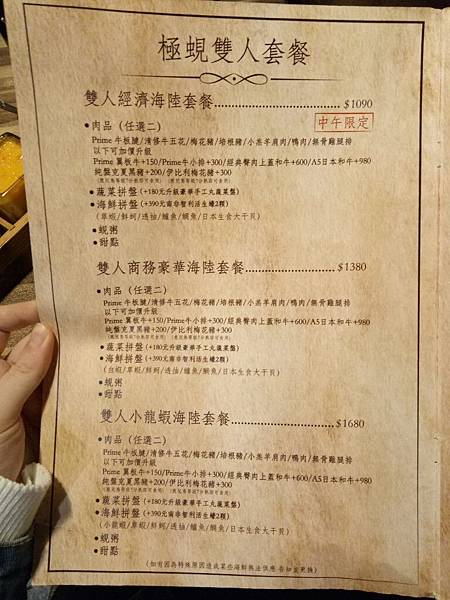 極蜆雙人套餐
雙人經濟海陸套餐 $1090
中午限定
•肉品（任選二）
Prime 牛板腱/清修牛五花/梅花豬/培根豬/小羔羊肩肉/鴨肉/無骨雞腿排
以下可加價升級
Prime 翼板牛+150/Prime牛小排+300/經典臀肉上蓋和牛+600/A5日本和牛+980
純盤克夏黑豬+200/伊比利梅花豬+300
•蔬菜拼盤(+180元升級豪華手工丸蔬菜盤)
•海鮮拼盤(+390元南非智利活生蠔2顆)
(草蝦/鮮蚵/透抽/鱸魚/鯛魚/日本生食大干貝)
•蜆粥
•甜點
雙人商務豪華海陸套餐 $1380
•肉品（任選二）
Prime 牛板腱/清修牛五花/梅花豬/培根豬/小羔羊肩肉/鴨肉/無骨雞腿排
以下可加價升級
Prime 翼板牛+150/Prime牛小排+300/經典臀肉上蓋和牛+600/A5日本和牛+980
純盤克夏黑豬+200/伊比利梅花豬+300
•蔬菜拼盤(+180元升級豪華手工丸蔬菜盤)
•海鮮拼盤(+390元南非智利活生蠔2顆)
(白蝦/草蝦/鮮蚵/透抽/鱸魚/鯛魚/日本生食大干貝)
•蜆粥
•甜點
雙人小龍蝦海陸套餐 $1680
•肉品（任選二）
Prime 牛板腱/清修牛五花/梅花豬/培根豬/小羔羊肩肉/鴨肉/無骨雞腿排
以下可加價升級
Prime 翼板牛+150/Prime牛小排+300/經典臀肉上蓋和牛+600/A5日本和牛+980
純盤克夏黑豬+200/伊比利梅花豬+300
•蔬菜拼盤(+180元升級豪華手工丸蔬菜盤)
•海鮮拼盤(+390元南非智利活生蠔2顆)
(小龍蝦/草蝦/鮮蚵/透抽/鱸魚/鯛魚/日本生食大干貝)
•蜆粥
•甜點
(如有因為特殊原因造成某些海鮮無法供應 告知並更換)